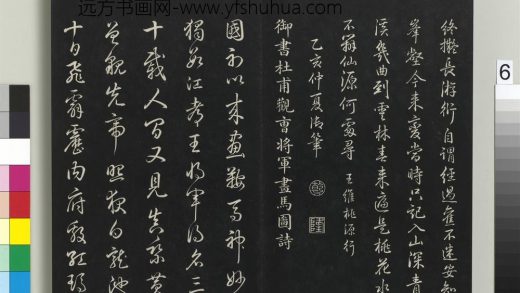 远方书画网-www.yfshuhua.com
終擬長游衍自謂經過舊不迷安知
峯壑今来變當時只記入山深青
溪幾曲到雲林春来遍是桃花水
不辨仙源何處尋 王維桃源行
乙亥仲夏御筆
御書杜甫觀曹将軍畫馬圖詩
國初以来畫鞍馬神妙
獨數江都王将軍得名三
十載人間又見真乘黄
曾貌先帝照夜白龍池
十日飛霹靂内府殷紅瑪
6